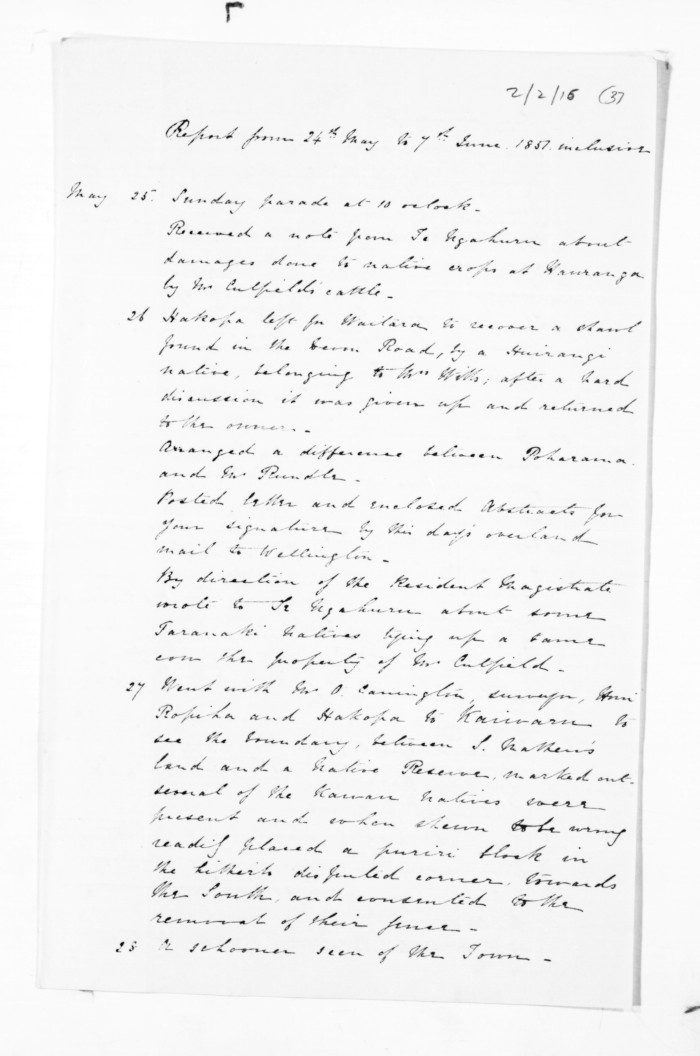 2/2/16 (3)
Report from 24th May to 7th June 1851. inclusive
May 25. Sunday parade at 10 oclock.
Received a note from Te Ngahuru about
damages done to native crops at Hauranga
by Mr Cutfield's cattle.
26 Hakopa left for Waitara to recover a shawl
found in the Devon Road, by a Huirangi
native, belonging to Mrs Wills; after a hard
discussion it was given up and returned
to the owner.
Arranged a difference between Poharama
and Mr Rundle.
Posted letter and enclosed Abstracts for
your signature by this day's overland
mail to Wellington.
By direction of the Resident Magistrate
wrote to Te Ngahuru about some
Taranaki Natives tying up a tame
cow the property of Mr Cutfield.
27 Went with Mr O. Carrington, surveyor, Honi
Ropiha and Hakopa to Kaiwaru to
see the boundary, between S. Mathews
land and a Native Reserve, marked out.
several of the Kawau Natives were
present and when shewn to be wrong
readily placed a puriri block in
the hitherto disputed corner, towards
the South, and consented to the
removal of their fence.
28 A schooner seen of the Town.